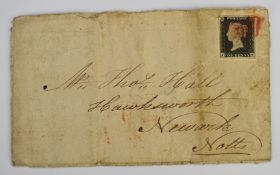 POSTAGE
ONE PENNY
Mr. Thos. Hall
Hawksworth
Newark
Notts